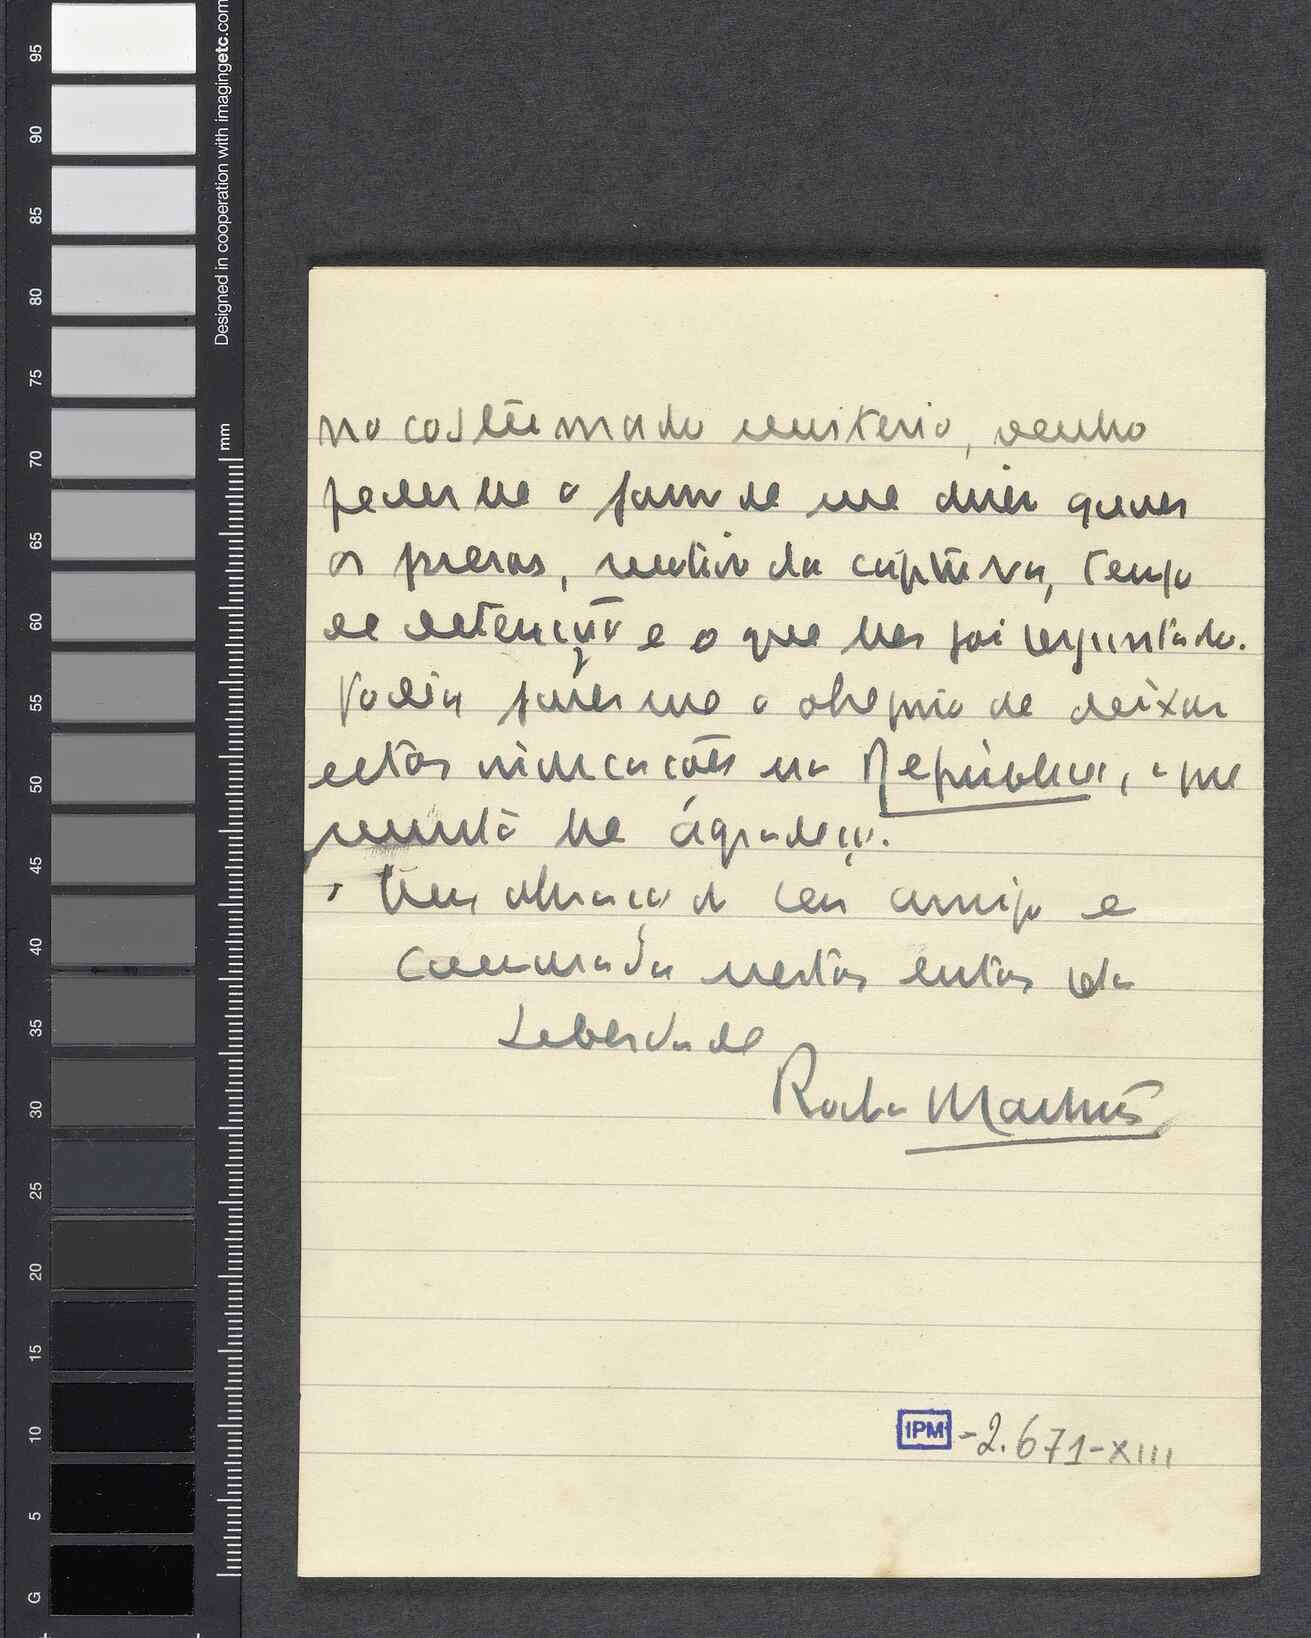 95
90
85
80
75
70
65
60
55
50
45
40
35
30
25
20
15
10
5
G
Designed in cooperation with imagingetc.com
mm
no costumado misterio, venho
pedir lhe o favor de me dizer quaes
os presos, motivo da captura, tempo
de detenção e o que lhes foi reguntado.
Podia fazer me o obsequio de deixar
estas indicações na Republica, o que
muito lhe agradeço.
Um abraço do seu amigo e
camarada nestas lutas da
Leberdade
Rocha Martins
IPM -2.671-XIII